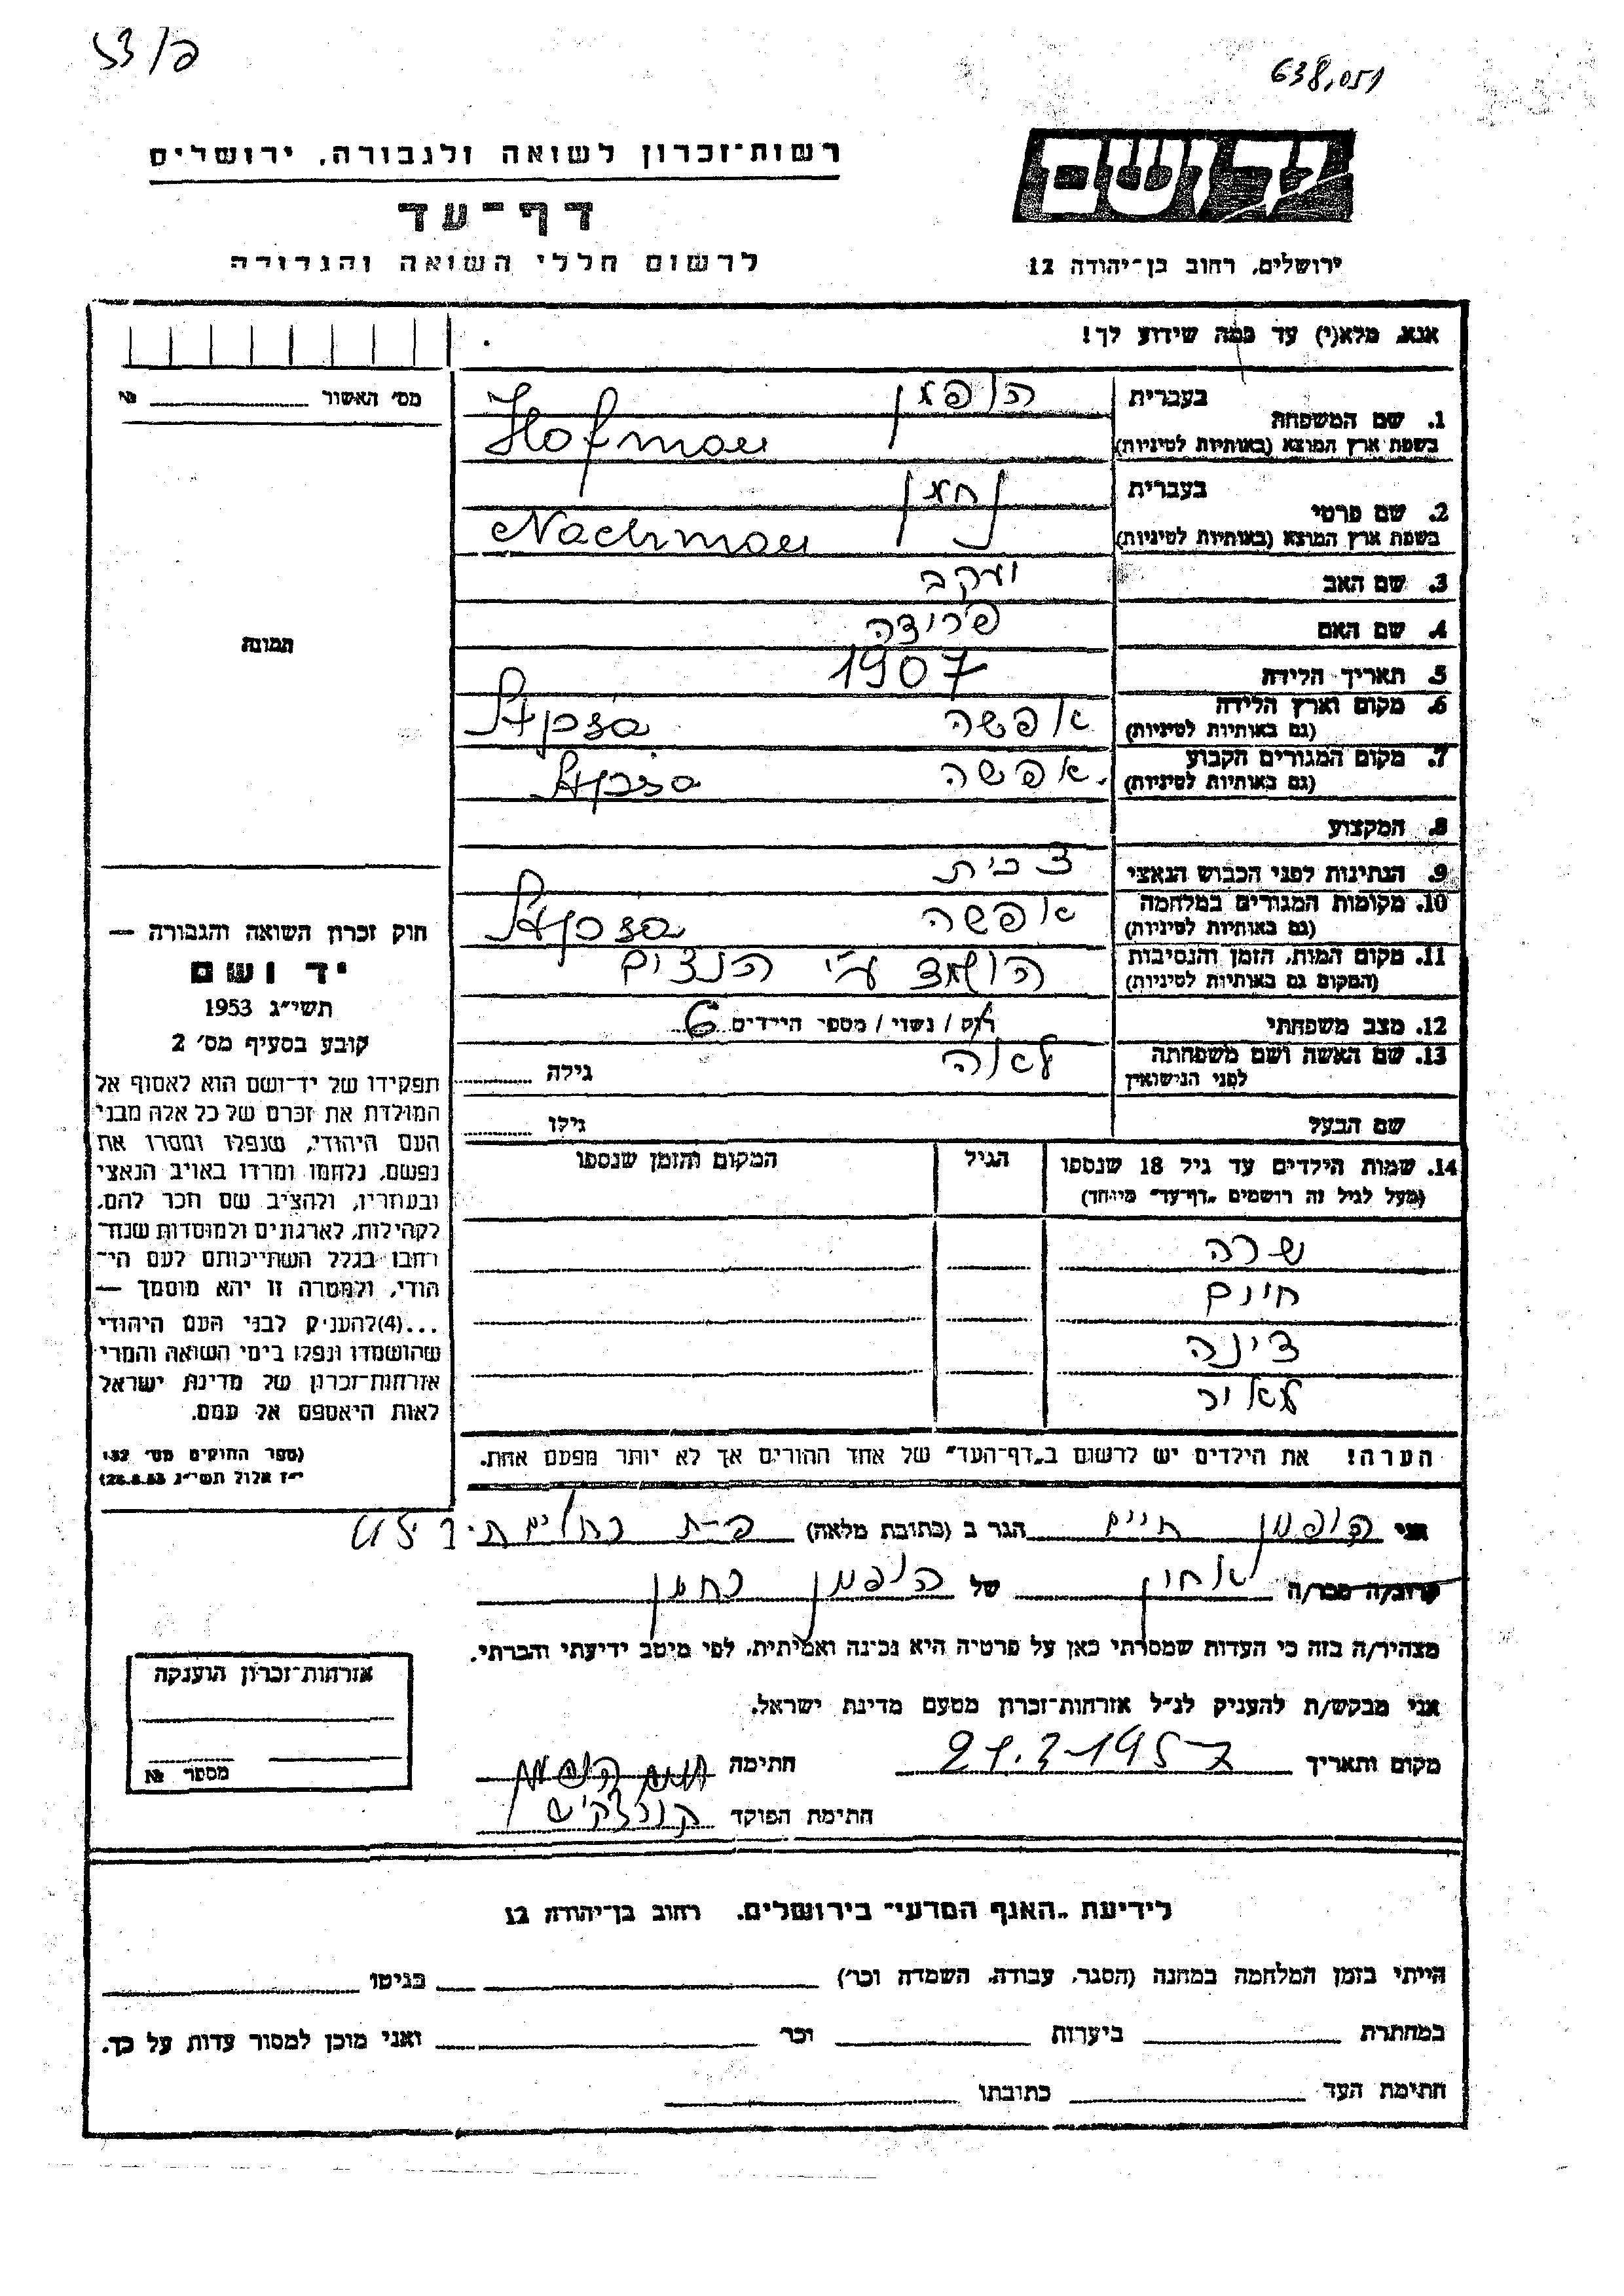 53/פ
638,051
רשות־זכרון לשואה ולגבורה, ירושלים
דף־עד
לרשום חללי השואה והגבורה
יד ושם
ירושלים, רחוב בן־יהודה 12
אנא, מלא(י) עד כמה שידוע לך!
מס' האשור №
1. שם המשפחה בעברית הופמן
בשפת ארץ המוצא (באותיות לטיניות) Hofman
2. שם פרטי בעברית נחמן
בשפת ארץ המוצא (באותיות לטיניות) Nachman
3. שם האב יעקב
4. שם האם פרידה
תמונה
5. תאריך הלידה 1907
6. מקום וארץ הלידה אפשה
(גם באותיות לטיניות)
7. מקום המגורים הקבוע אפשה
(גם באותיות לטיניות)
8. המקצוע
9. הנתינות לפני הכבוש הנאצי צכית
10. מקומות המגורים במלחמה אפשה
(גם באותיות לטיניות)
11. מקום המות, הזמן והנסיבות הושמד ע"י הנצים
(המקום גם באותיות לטיניות)
12. מצב משפחתי רוק / נשוי / מספר הילדים 6
13. שם האשה ושם משפחתה לאה
לפני הנישואין גילה
שם הבעל גילו
14. שמות הילדים עד גיל 18 שנספו הגיל המקום והזמן שנספו
(מעל לגיל זה רושמים „דף־עד” מיוחד)
שרה
חיים
דינה
מאיר
הערה! את הילדים יש לרשום ב„דף־העד” של אחד ההורים אך לא יותר מפעם אחת.
חוק זכרון השואה והגבורה —
יד ושם
תשי״ג 1953
קובע בסעיף מס׳ 2
תפקידו של יד־ושם הוא לאסוף אל
המולדת את זכרם של כל אלה מבני
העם היהודי, שנפלו ומסרו את
נפשם, נלחמו ומרדו באויב הנאצי
ובעוזריו, ולהציב שם וזכר להם,
לקהילות, לארגונים ולמוסדות שנח־
רבו בגלל השתייכותם לעם הי־
הודי, ולמטרה זו יהא מוסמך —
...(4)להעניק לבני העם היהודי
שהושמדו ונפלו בימי השואה והמרי
אזרחות־זכרון של מדינת ישראל
לאות היאספם אל עמם.
(ספר החוקים מס׳ 132,
י״ז אלול תשי״ג 28.8.53)
אני הופמן חיים הגר ב (כתובת מלאה)
קרוב/ה מכר/ה אחיו של הופמן נחמן
מצהיר/ה בזה כי העדות שמסרתי כאן על פרטיה היא נכונה ואמיתית, לפי מיטב ידיעתי והכרתי.
אני מבקש/ת להעניק לנ״ל אזרחות־זכרון מטעם מדינת ישראל.
מקום ותאריך 21.2-1957 חתימה חיים הופמן
חתימת הפוקד
אזרחות־זכרון הוענקה
מספר №
לידיעת „האגף המדעי” בירושלים, רחוב בן־יהודה 12
הייתי בזמן המלחמה במחנה (הסגר, עבודה, השמדה וכר׳) בגיטו
במחתרת ביערות וכר ואני מוכן למסור עדות על כך.
חתימת העד כתובתו